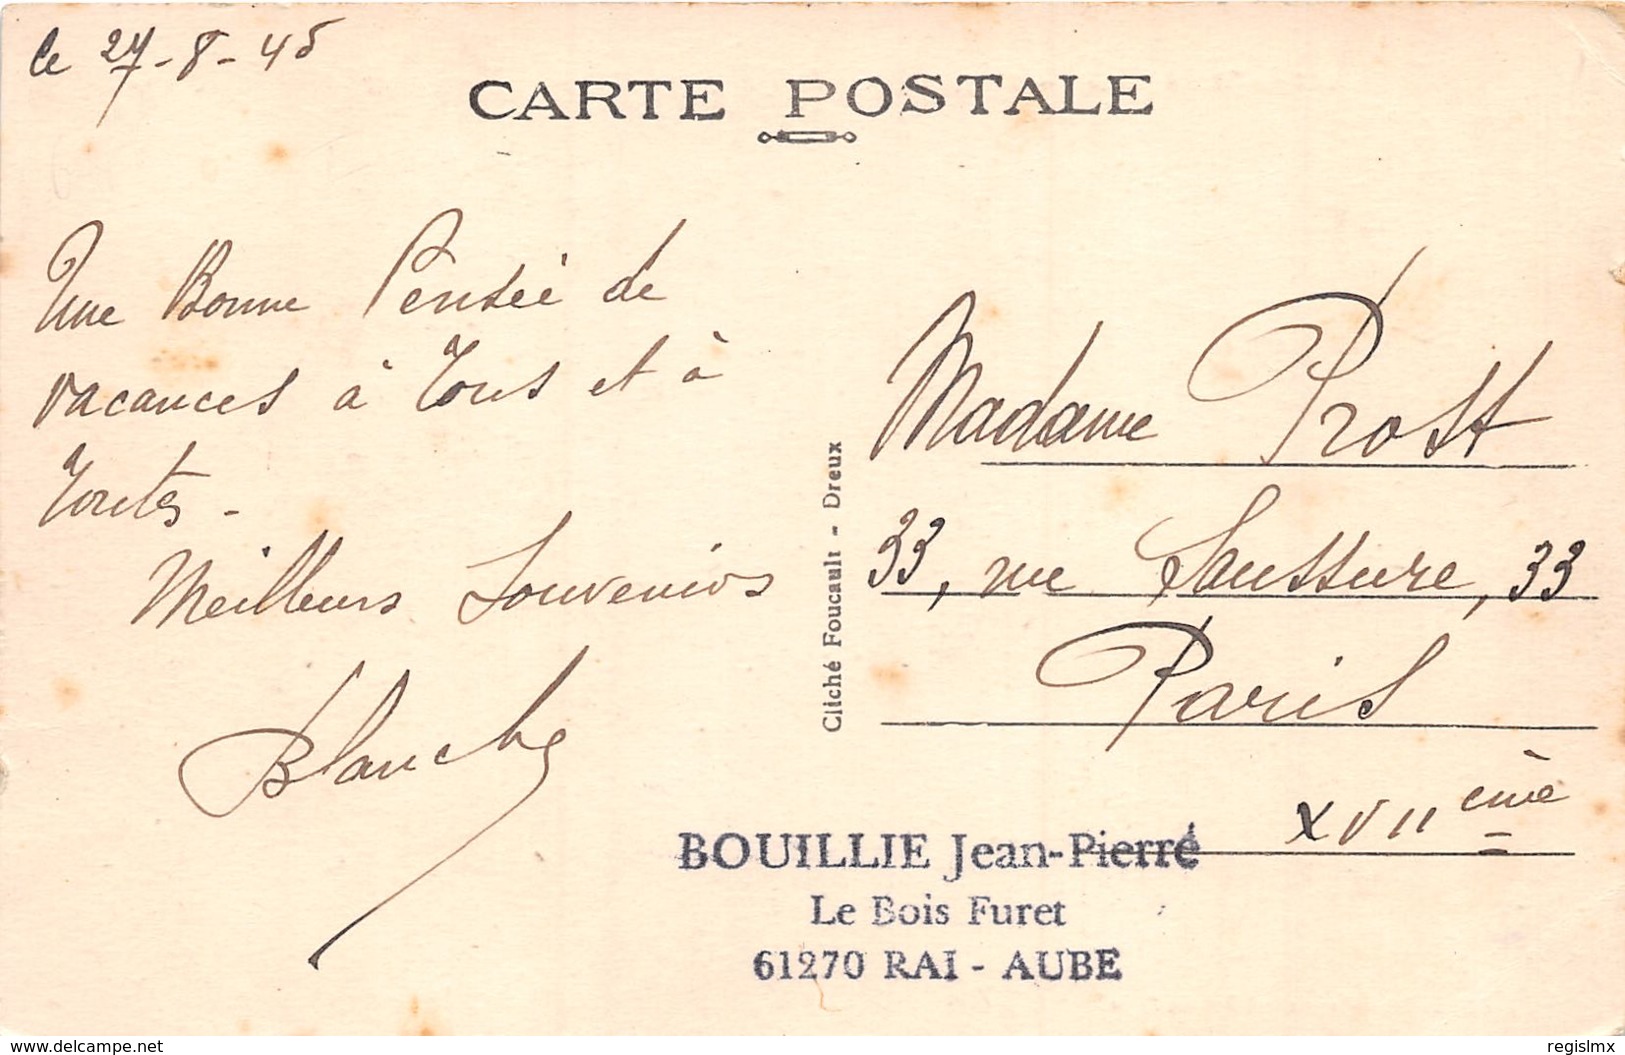 le 27-8-45
CARTE POSTALE
Une Bonne Pensée de
vacances à Tous et à
Toutes -
Meilleurs Souvenirs
Blanche
Cliché Foucault - Dreux
Madame Prost
33, rue Saussure, 33
Paris
XVII ème
BOUILLIE Jean-Pierre
Le Bois Furet
61270 RAI - AUBE
www.delcampe.net
regislmx